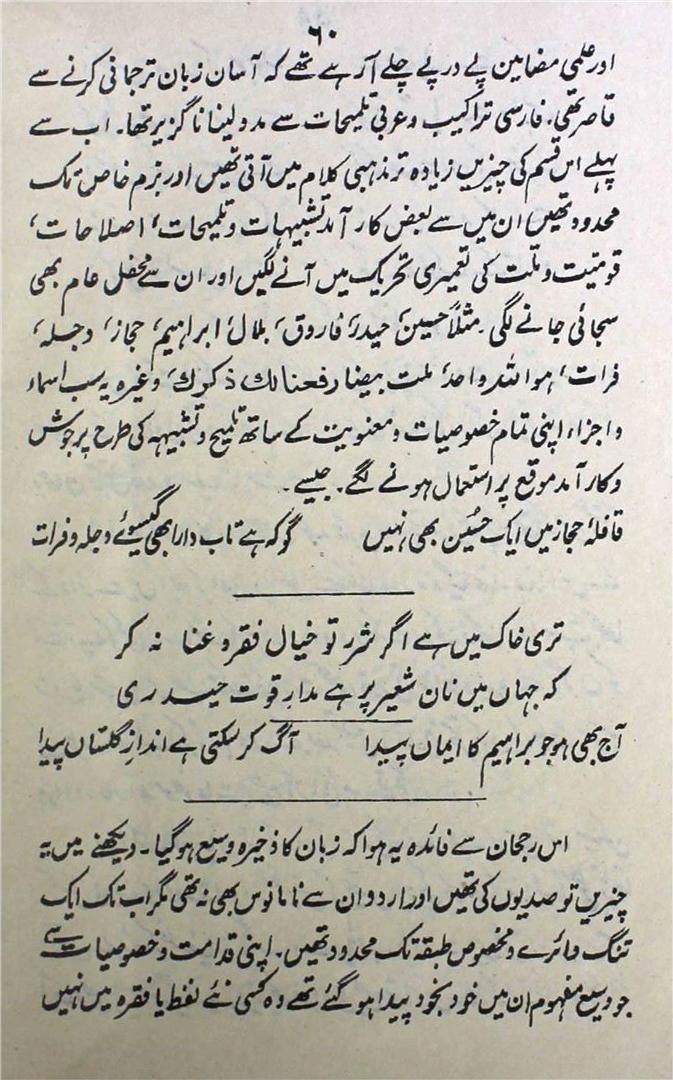 ۶۰
اور علمی مضامین پے درپے چلے آر ہے تھے کہ آسان زبان ترجمانی کرنے سے
قاصر تھی۔ فارسی تراکیب و عربی تلمیحات سے مدد لینا ناگزیر تھا۔ اب سے
پہلے اس قسم کی چیزیں زیادہ تر مذہبی کلام میں آتی تھیں اور بزم خاص تک
محدود تھیں ان میں سے بعض کار آمد تشبیہات و تلمیحات، اصلاحات،
قومیت و ملت کی تعمیری تحریک میں آنے لگیں اور ان سے محفل عام بھی
سجائی جانے لگی۔ مثلاً حسین، حیدر، فاروق، بلال، ابراہیم، حجاز، دجلہ،
فرات، ہو اللہ واحد، ملت بیضا رفعنا لک ذکرک، وغیرہ یہ سب اسماء
و اجزاء اپنی تمام خصوصیات و معنویت کے ساتھ تلمیح و تشبیہہ کی طرح پر جوش
و کار آمد موقع پر استعمال ہونے لگے۔ جیسے۔
قافلۂ حجاز میں ایک حسین بھی نہیں گو کہ ہے تاب دار ابھی گیسوئے دجلہ و فرات
تری خاک میں ہے اگر شرر تو خیال فقر و غنا نہ کر
کہ جہاں میں نان شعیر پر ہے مدارِ قوت حیدری
آج بھی ہو جو براہیم کا ایماں پیدا آگ کر سکتی ہے اندازِ گلستاں پیدا
اس رجحان سے فائدہ یہ ہوا کہ زبان کا ذخیرہ وسیع ہو گیا۔ دیکھنے میں یہ
چیزیں تو صدیوں کی تھیں اور اردو ان سے نا مانوس بھی نہ تھی مگر اب تک ایک
تنگ دائرے و مخصوص طبقہ تک محدود تھیں۔ اپنی قدامت و خصوصیات سے
جو وسیع مفہوم ان میں خود بخود پیدا ہو گئے تھے وہ کسی نئے لفظ یا فقرہ میں نہیں